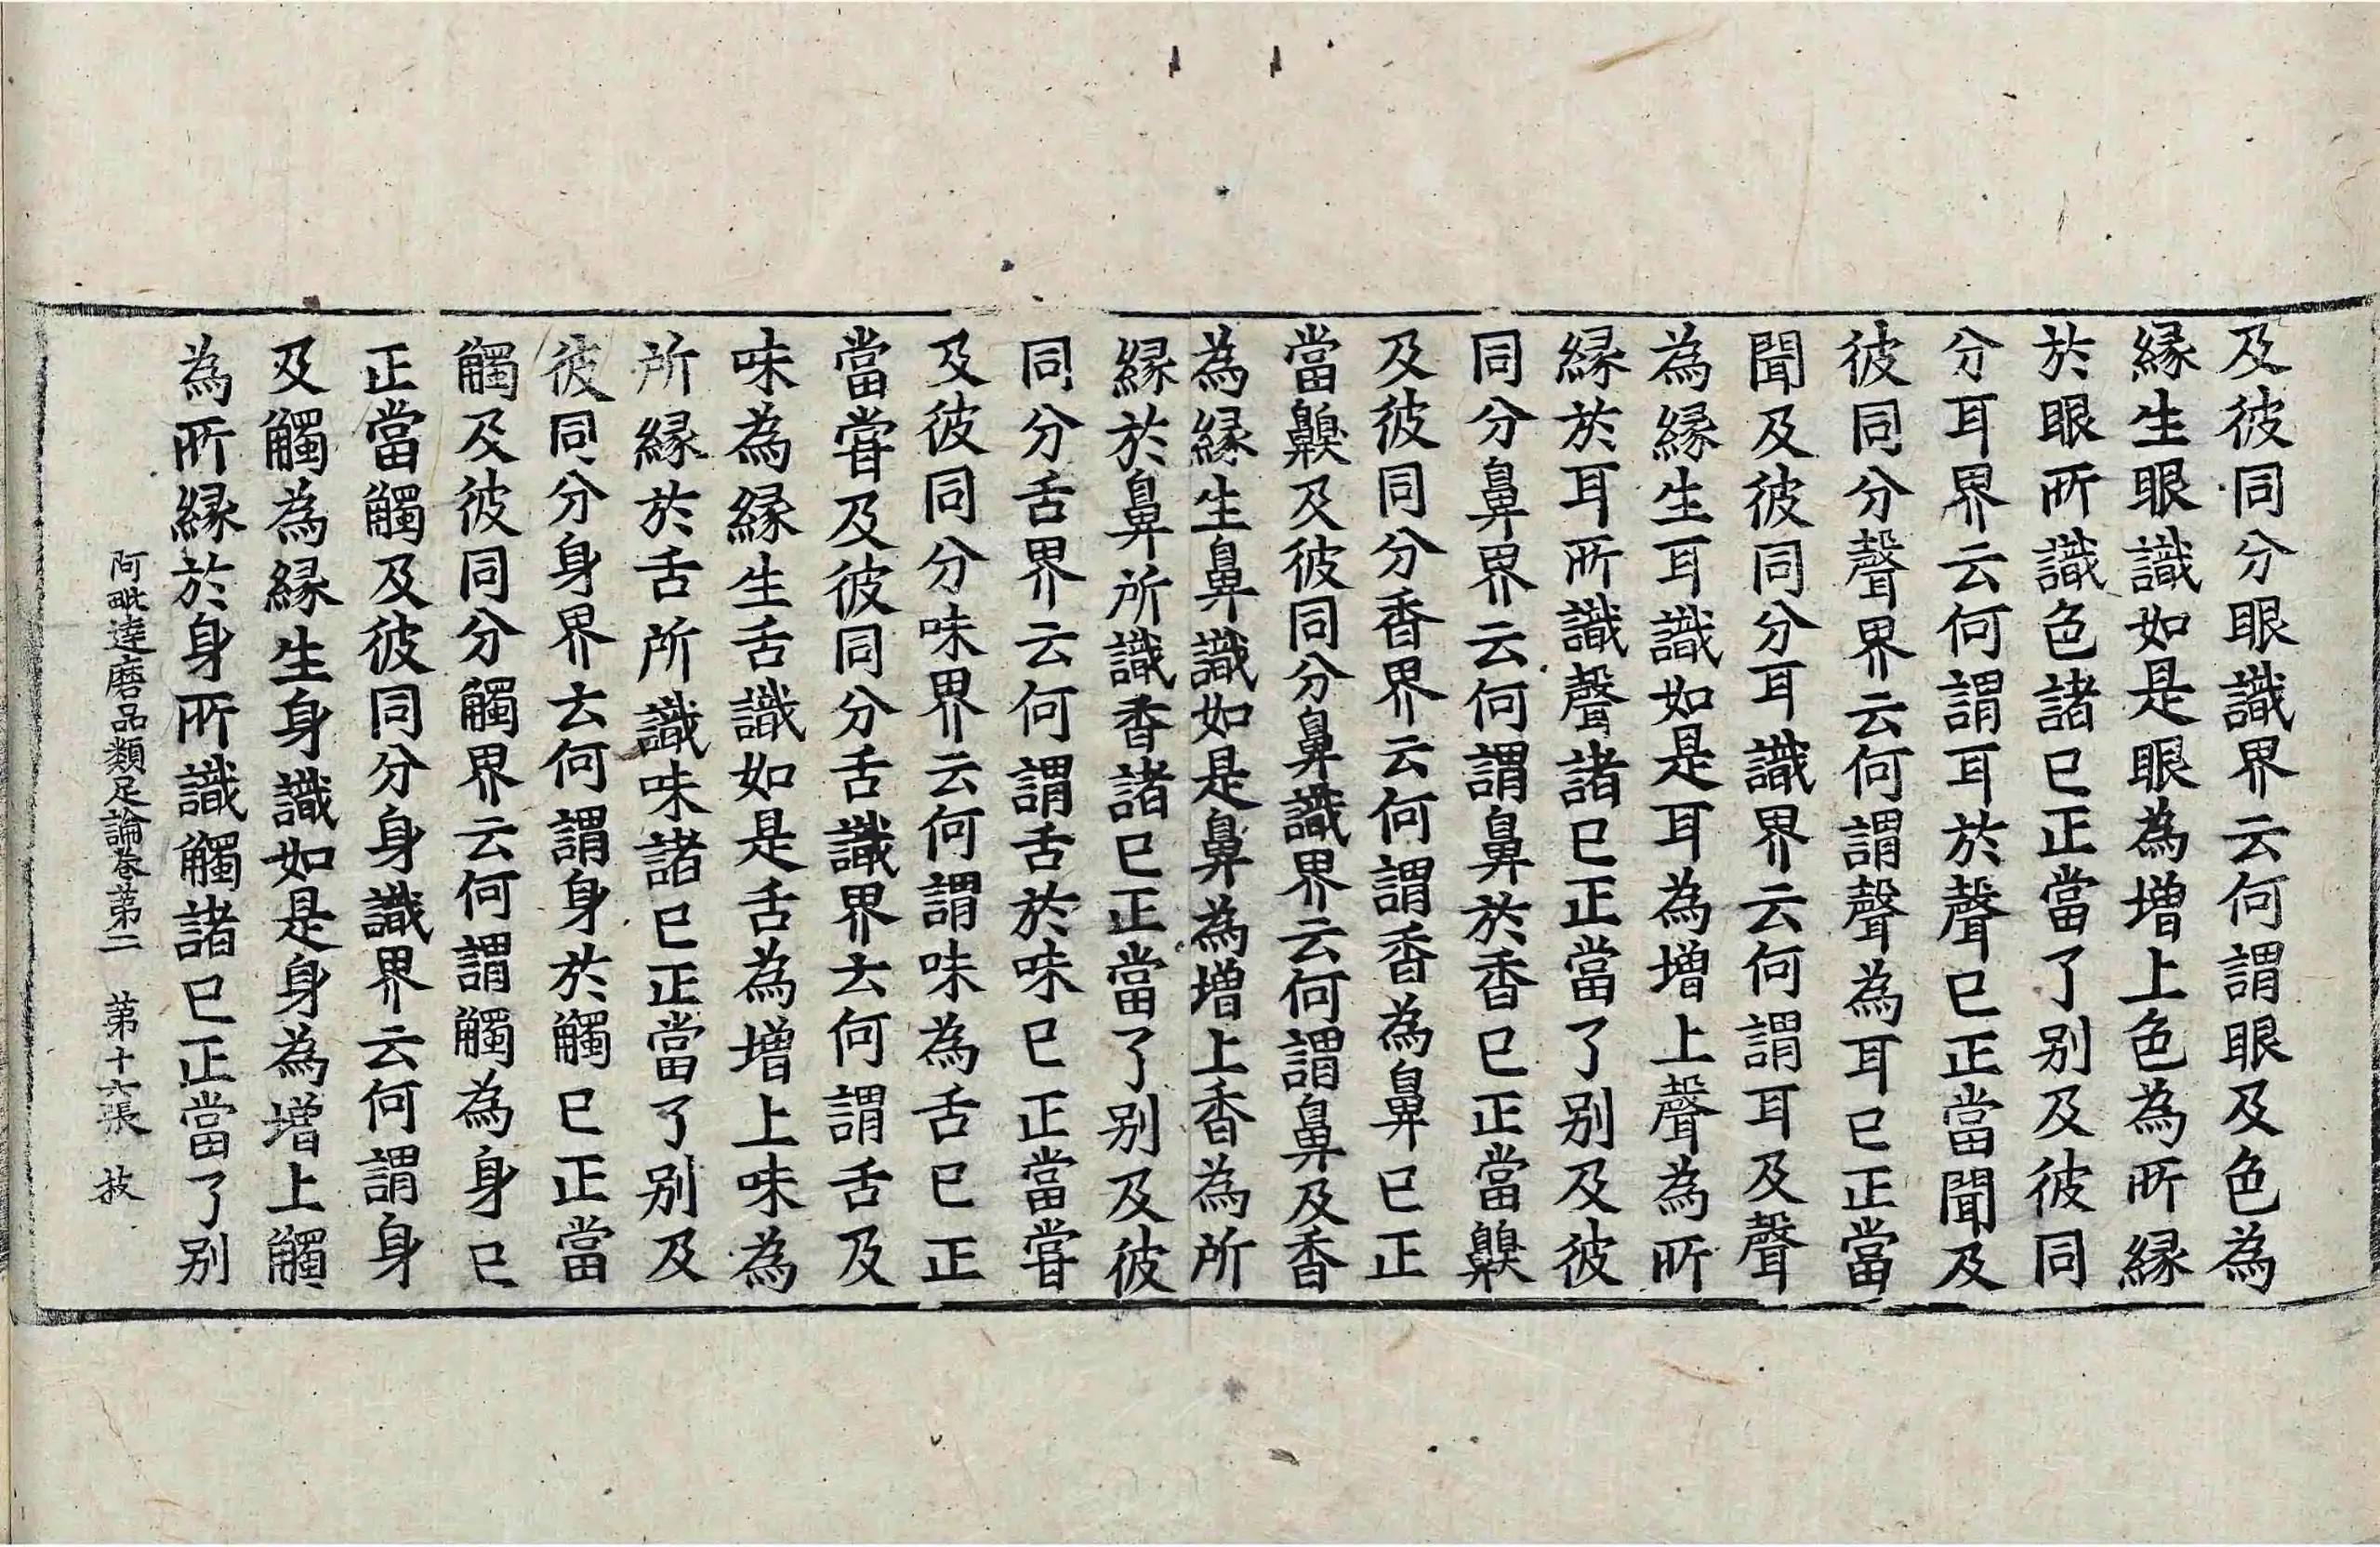 及彼同分眼識界云何謂眼及色為
縁生眼識如是眼為増上色為所縁
於眼所識色諸已正當了别及彼同
分耳界云何謂耳於聲已正當聞及
彼同分聲界云何謂聲為耳已正當
聞及彼同分耳識界云何謂耳及聲
為縁生耳識如是耳為増上聲為所
縁於耳所識聲諸已正當了别及彼
同分鼻界云何謂鼻於香已正當齅
及彼同分香界云何謂香為鼻已正
當齅及彼同分鼻識界云何謂鼻及香
為縁生鼻識如是鼻為増上香為所
縁於鼻所識香諸已正當了别及彼
同分舌界云何謂舌於味已正當甞
及彼同分味界云何謂味為舌已正
當甞及彼同分舌識界云何謂舌及
味為縁生舌識如是舌為増上味為
所縁於舌所識味諸已正當了别及
彼同分身界云何謂身於觸已正當
觸及彼同分觸界云何謂觸為身已
正當觸及彼同分身識界云何謂身
及觸為縁生身識如是身為増上觸
為所縁於身所識觸諸已正當了别
阿毗達磨品類足論卷第二 第十六張 技